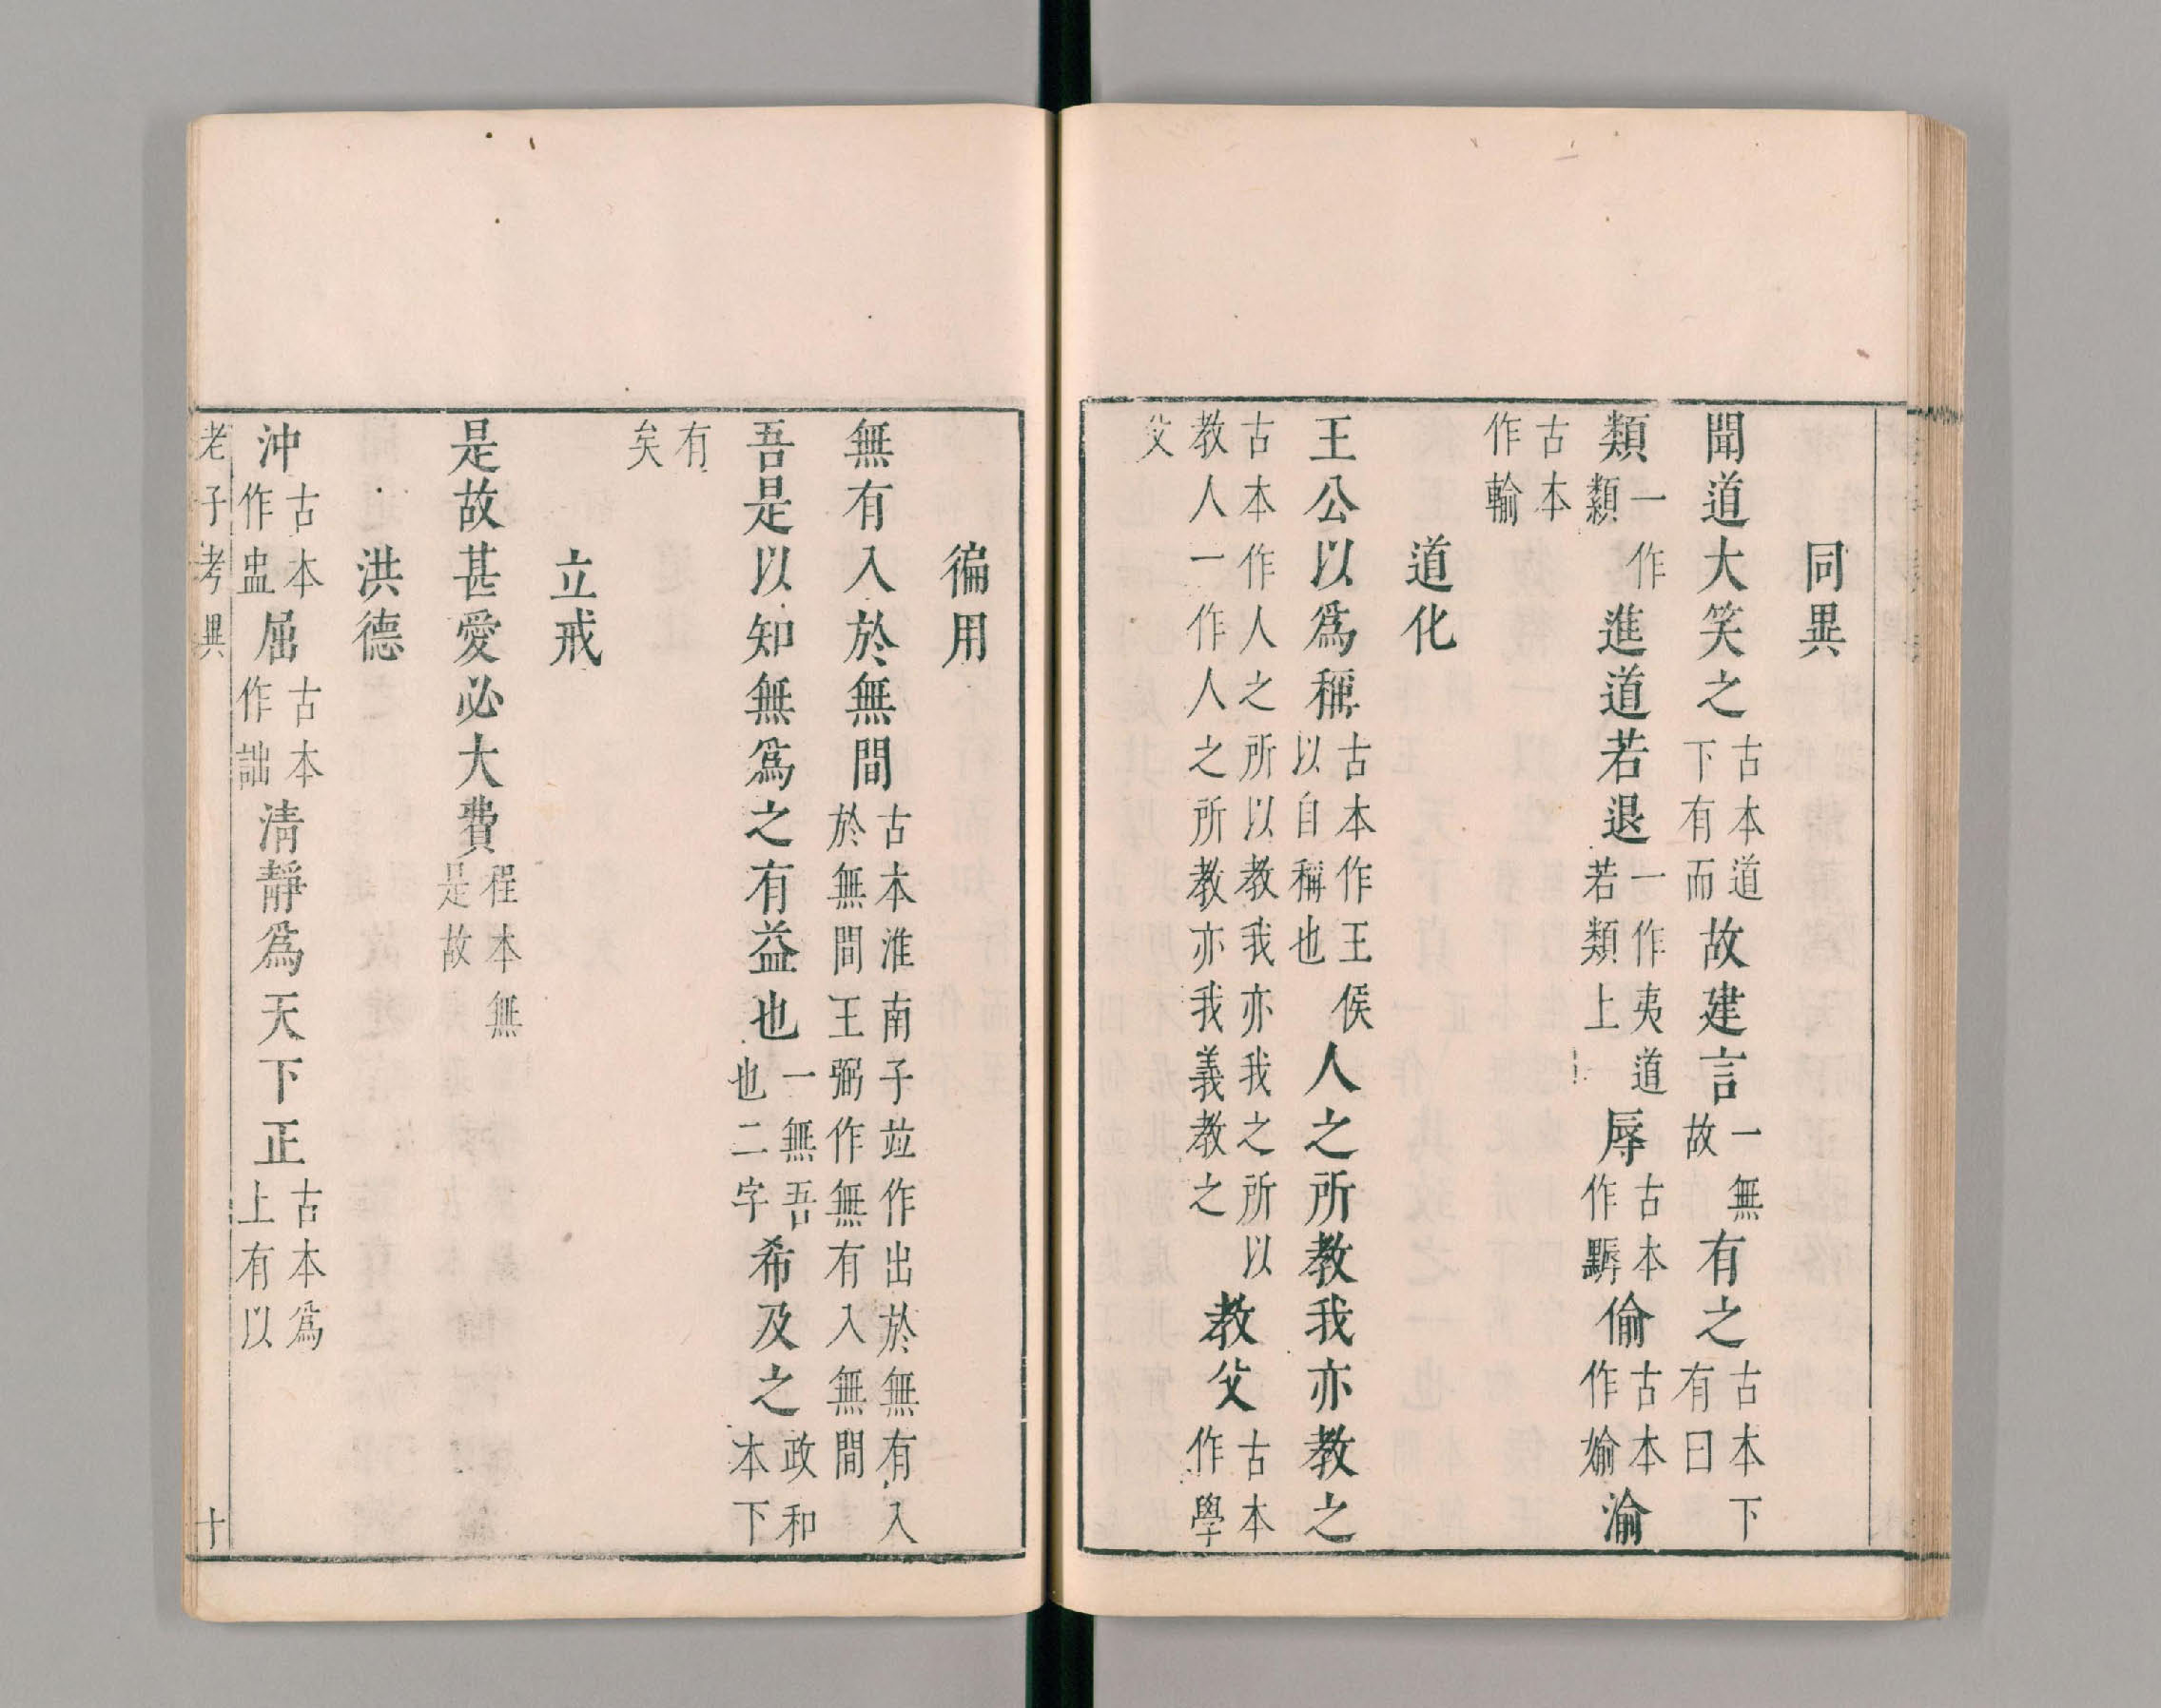 同異
聞道大笑之古本道下有而故建言一無故有之古本下有曰
類一作纇進道若退一作夷道若類上辱古本作䵾偷古本作媮渝
古本作輸
道化
王公以爲稱古本作王侯以自稱也人之所教我亦教之
古本作人之所以教我亦我之所以教人一作人之所教亦我義教之教父古本作學
父
徧用
無有入於無間古本淮南子竝作出於無有入於無間王弼作無有入無間
吾是以知無爲之有益也一無吾也二字希及之政和本下
有矣
立戒
是故甚愛必大費程本無是故
洪德
沖古本作盅屈古本作詘清靜爲天下正古本爲上有以
老子考異 十